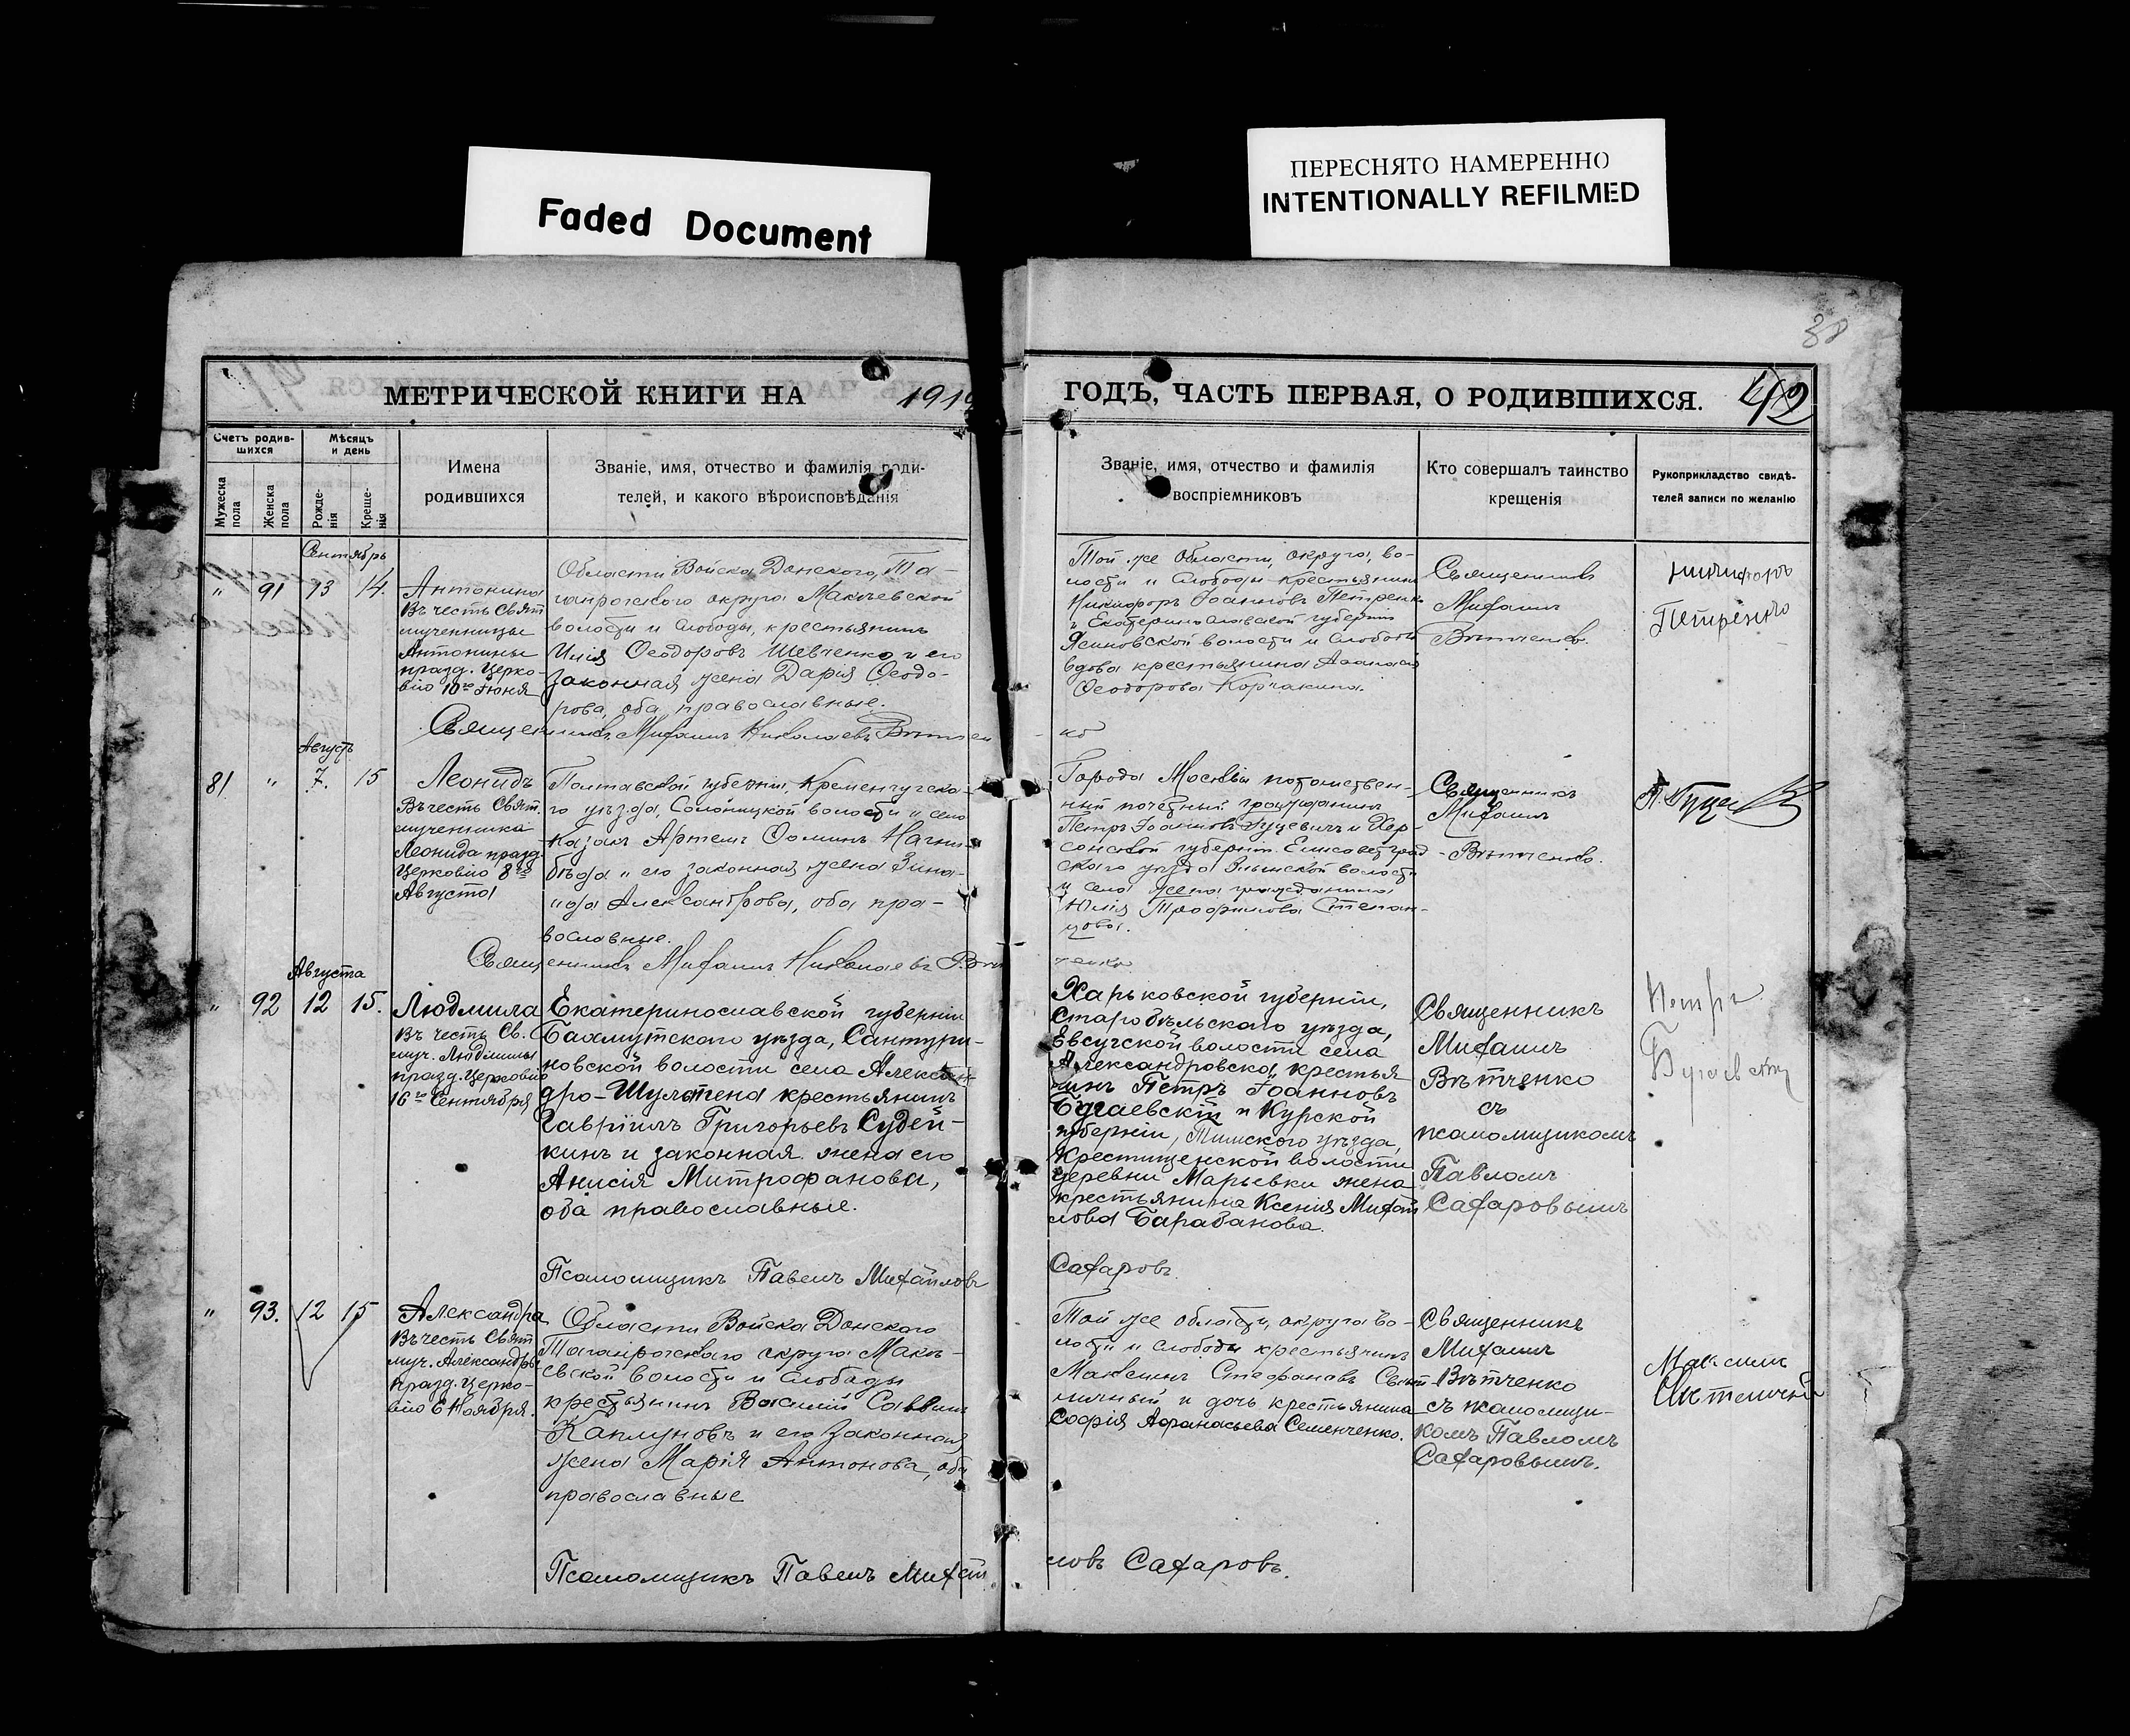 ПЕРЕСНЯТО НАМЕРЕННО
INTENTIONALLY REFILMED
Faded Document
38
МЕТРИЧЕСКОЙ КНИГИ НА 191
ГОДЪ, ЧАСТЬ ПЕРВАЯ, О РОДИВШИХСЯ.
42
Счетъ родив-
шихся
Мужеска
пола
Женска
пола
Мѣсяцъ
и день
Рожде-
нія
Креще-
нія
Имена
родившихся
Званіе, имя, отчество и фамилія роди-
телей, и какого вѣроисповѣданія
Званіе, имя, отчество и фамилія
воспріемниковъ
Кто совершалъ таинство
крещенія
Рукоприкладство свидѣ-
телей записи по желанію
Сентябрь
" 91 13 14.
Антонина
Въ честь Свят
мученницы
Антонины
празд. Церко-
вію 10го Іюня
Области Войска Донского, Та-
ганрогскаго округа Макѣевской
волости и слободы, крестьянинъ
Илія Ѳеодоровъ Шевченко и его
законная жена Дарія Ѳеодо-
рова, оба православные.
Той же области, округа, во-
лости и слободы крестьянинъ
Никифоръ Іоанновъ Петренко
и Екатеринославской губерніи
Ясиновской волости и слободы
вдова крестьянина
Ѳеодорова Корчакина.
Священникъ
Михаилъ
Вѣтченко.
Никифоръ
Петренко
Священникъ Михаилъ Николаевъ Вѣтчен
ко
Августъ
81 " 7. 15
Леонидъ
Въ честь Свят.
мученника
Леонида празд.
Церковію 8го
Августа
Полтавской губерніи, Кременчугска-
го уѣзда, Солоницкой волости и села
казакъ Артемъ Ѳоминъ Нагни-
бѣда и его законная жена Зина-
ида Александрова, оба пра-
вославные.
Города Москвы потомствен-
ный почетный гражданинъ
Петръ Іоанновъ Гуцевичъ и Хер-
сонской губерніи Елисаветград
скаго уѣзда волости
и села жена гражданина
Юлія Трофимова Степан-
цова.
Священникъ
Михаилъ
Вѣтченко.
Священникъ Михаилъ Николаевъ Вѣт
ченко
Августа
" 92 12 15.
Людмила
Въ честь Св.
муч. Людмилы
празд. Церковію
16го Сентября
Екатеринославской губерніи
Бахмутскаго уѣзда, Сантури-
новской волости села Алексан
дро-Шультена крестьянинъ
Гавріилъ Григорьевъ Судей-
кинъ и законная жена его
Анисія Митрофанова,
оба православные.
Харьковской губерніи,
Старобѣльскаго уѣзда,
Евсугской волости села
Александровска крестья
нинъ Петръ Іоанновъ
Бугаевскій и Курской
губерніи, Тимского уѣзда,
Крестищенской волости
деревни Марьевки жена
крестьянина Ксенія Михаи
лова Барабанова.
Священникъ
Михаилъ
Вѣтченко
съ
псаломщикомъ
Павломъ
Сахаровымъ
Петръ
Бугаевскій
Псаломщикъ Павелъ Михайловъ
Сахаровъ
" 93. 12 15
Александра
Въ честь Свят
муч. Александры
празд. Церко-
вію 6 Ноября.
Области Войска Донского
Таганрогскаго округа Макѣ-
евской волости и слободы
крестьянинъ Василій Саввинъ
Каплуновъ и его законная
жена Марія Антонова, оба
православные
Той же области, округа во-
лости и слободы крестьянинъ
Максимъ Стефановъ Свѣт-
личный и дочь крестьянина
Софія Афанасьева Семенченко.
Священникъ
Михаилъ
Вѣтченко
съ псаломщи-
комъ Павломъ
Сахаровымъ.
Максимъ
Псаломщикъ Павелъ Михай
ловъ Сахаровъ.